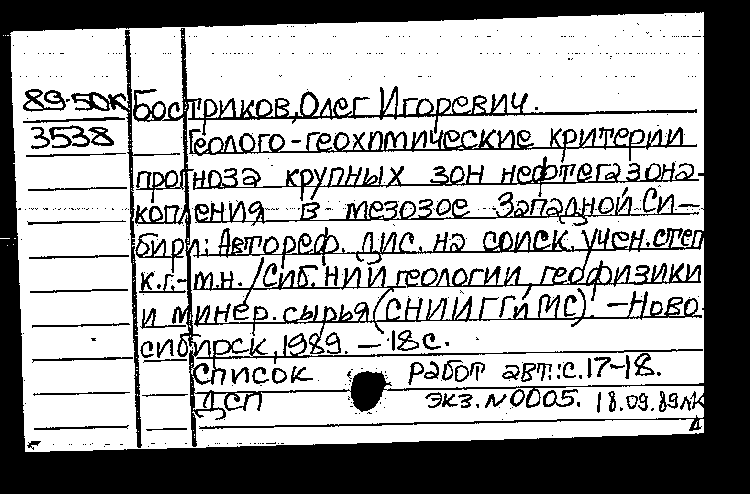 89-50к Бостриков, Олег Игоревич.
3538 Геолого-геохимические критерии
прогноза крупных зон нефтегазона-
копления в мезозое Западной Си-
бири: Автореф. дис. на соиск. учен. степ
к.г.-м.н. /Сиб. НИИ геологии, геофизики
и минер. сырья (СНИИГГиМС). - Ново-
сибирск, 1989. - 18 с.
Список работ авт.: с. 17-18.
ДСП экз. N0005. 18.09.89лк